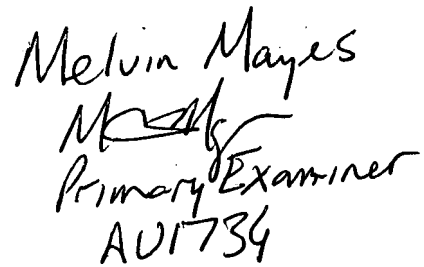 Melvin Mayes
Primary Examiner
AU1734